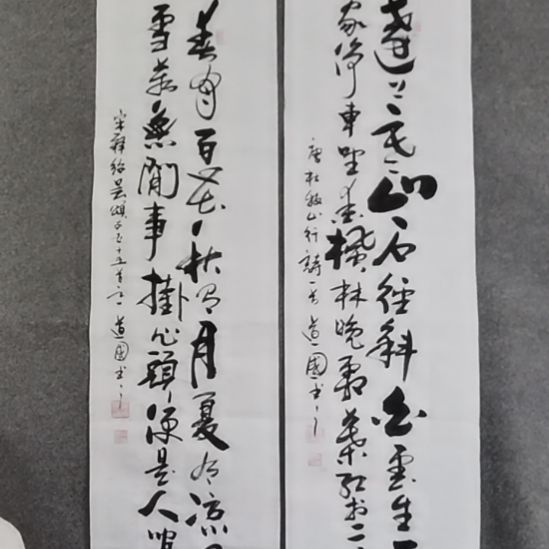 遠上寒山石徑斜白雲生
家停車坐愛楓林晚霜葉紅於二
唐杜牧山行詩一首 道國書
春有百花秋有月夏有凉
雪若無閒事掛心頭便是人間
宋釋紹曇頌古五十五首之一 道國書